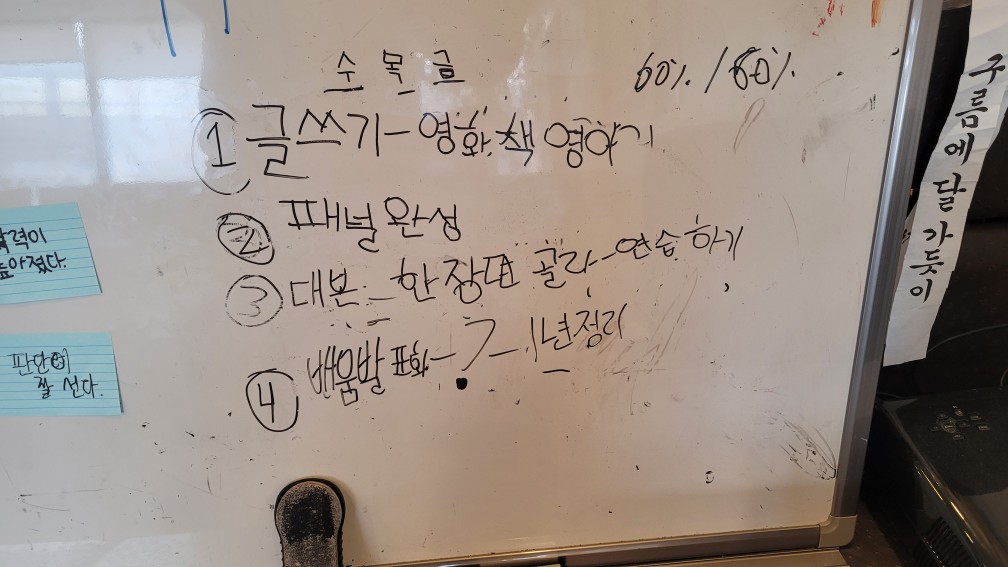 수 목 금
60% / 80%
① 글쓰기-영화, 책 영
② 패널 완성
③ 대본 - 한 장면 골라-연습 하기
④ 배움발표회 - ? - 1년정리
력이
높아졌다.
판단이
잘 선다.
구름에 달 가듯이